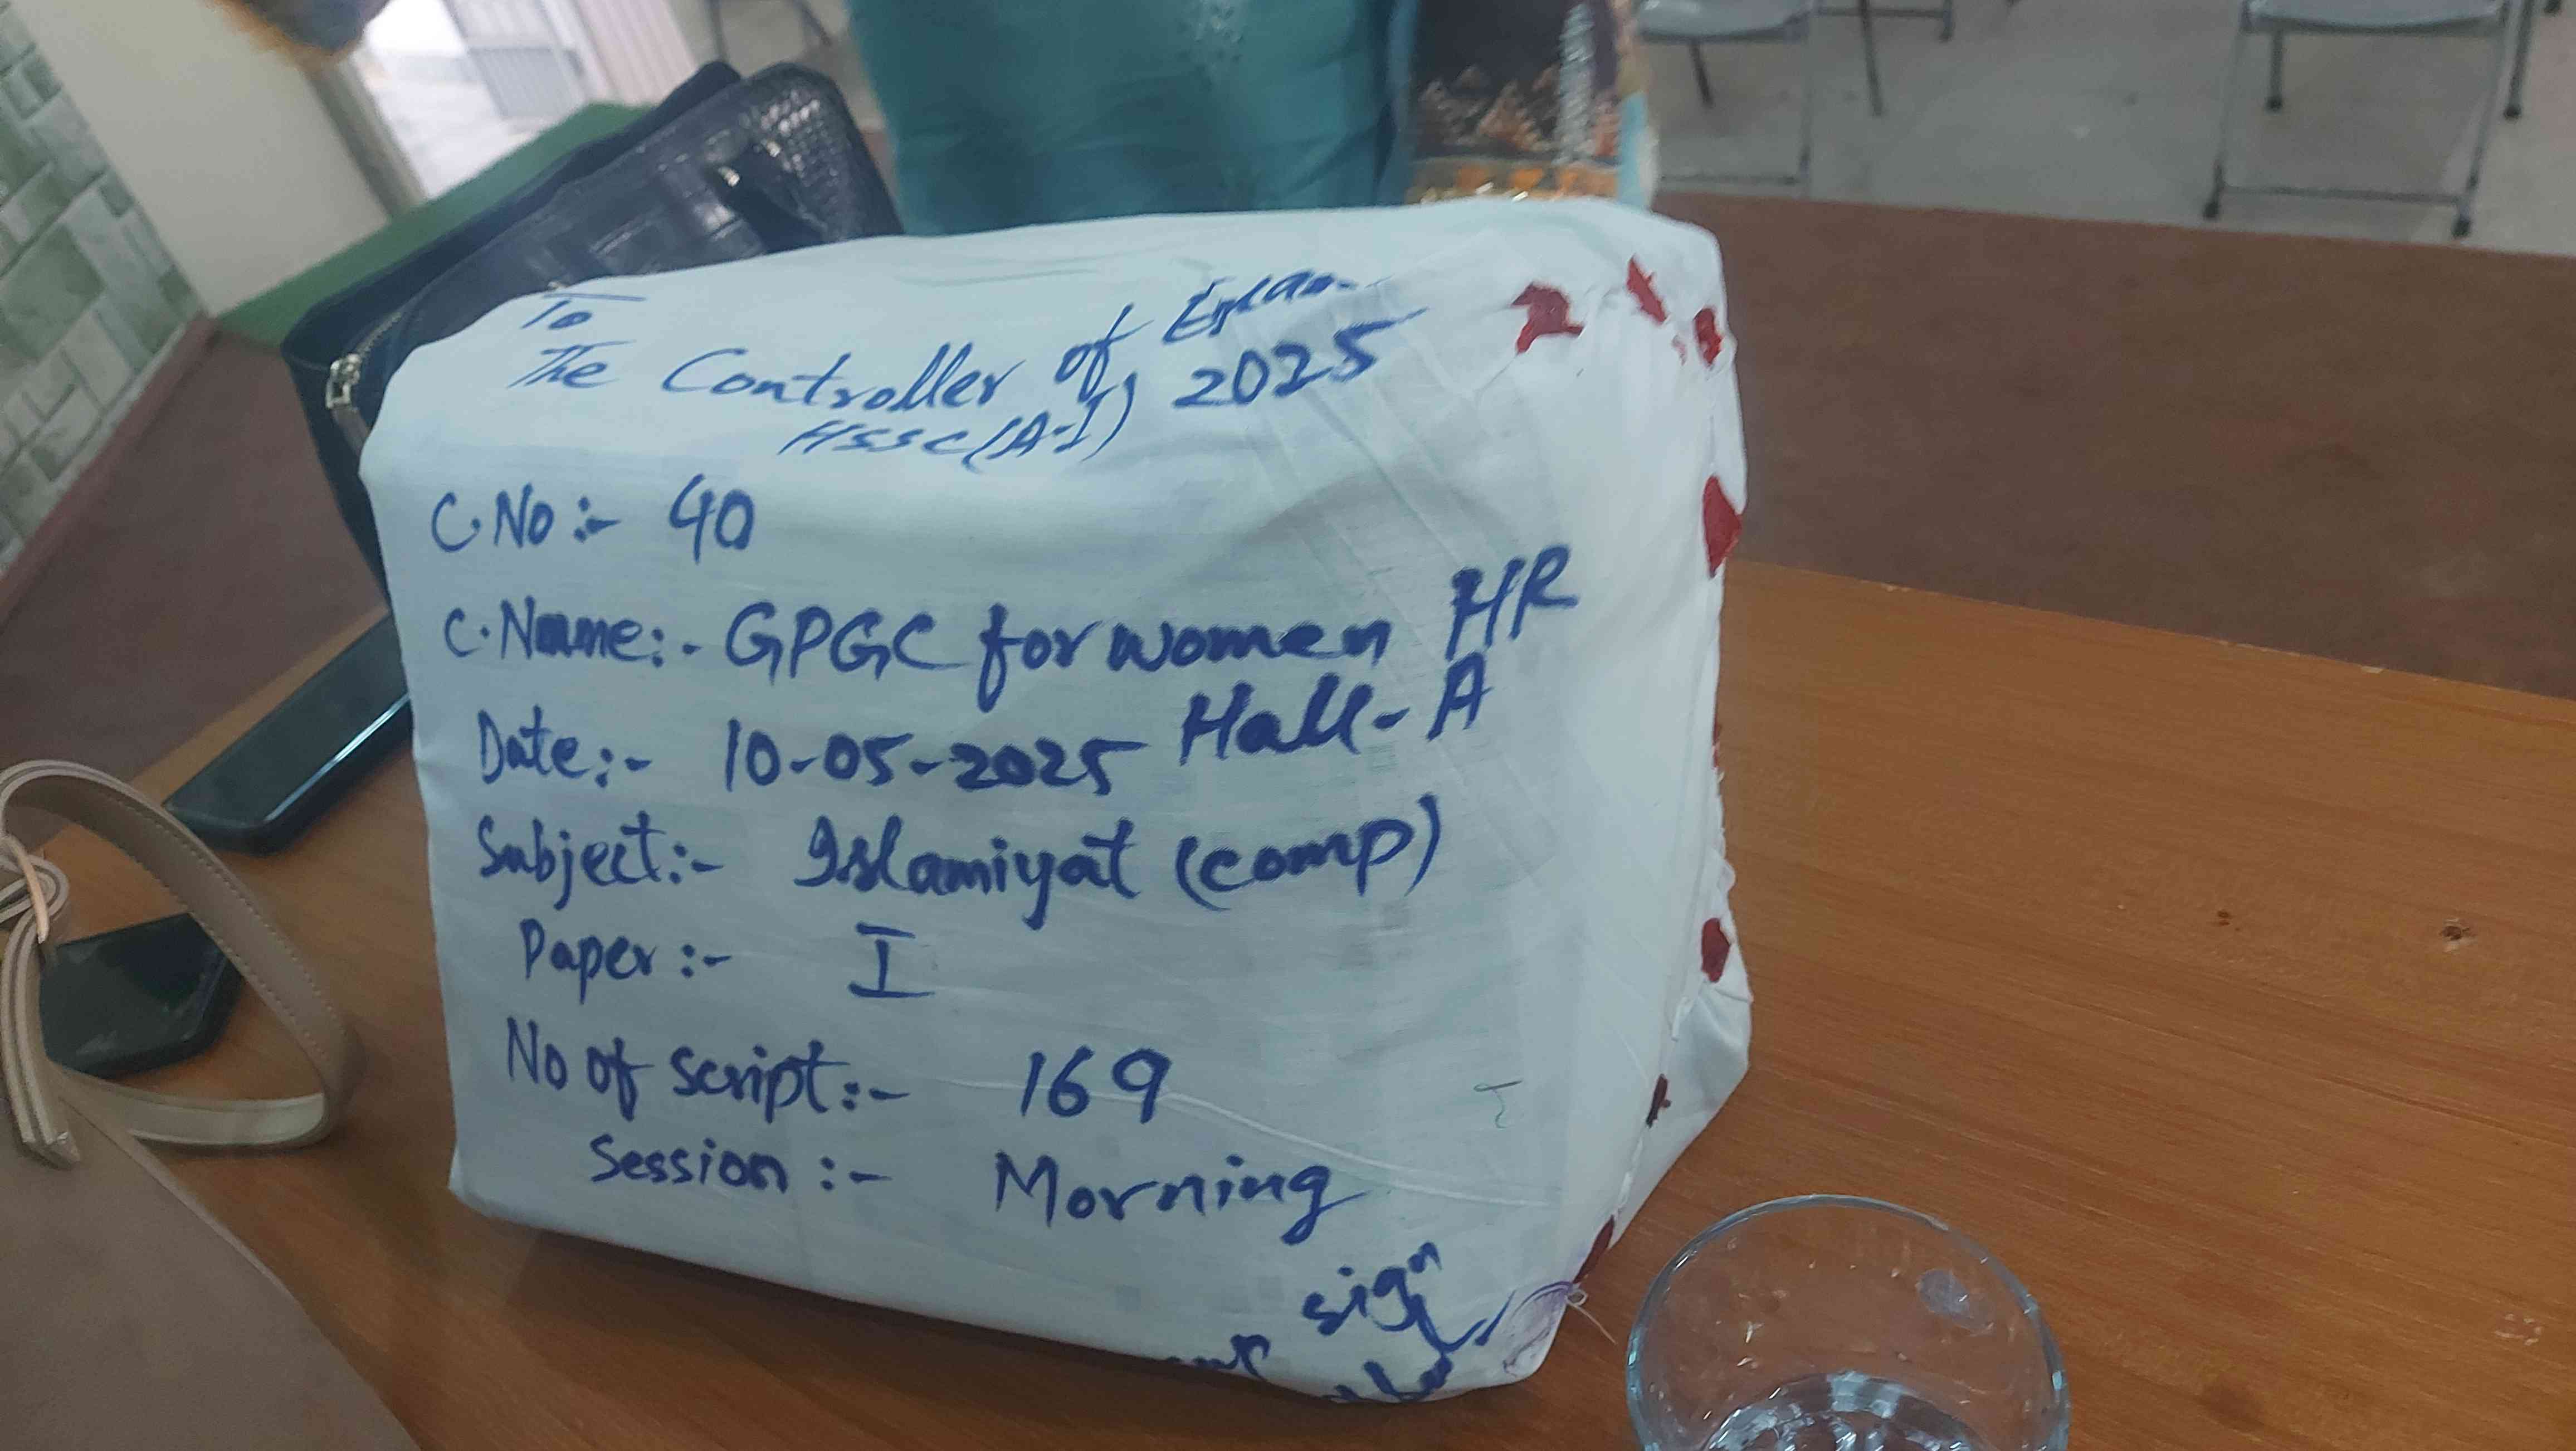 To
The Controller of Exam.
HSSC(A-I) 2025
C.No:- 40
C.Name:- GPGC for women HR
Hall-A
Date:- 10-05-2025
Subject:- Islamiyat (comp)
Paper:- I
No of script:- 169
Session:- Morning
sign